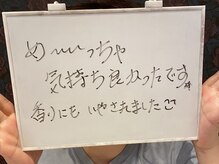 めいいっちゃ
気持ち良かったです
香りにもいやされました